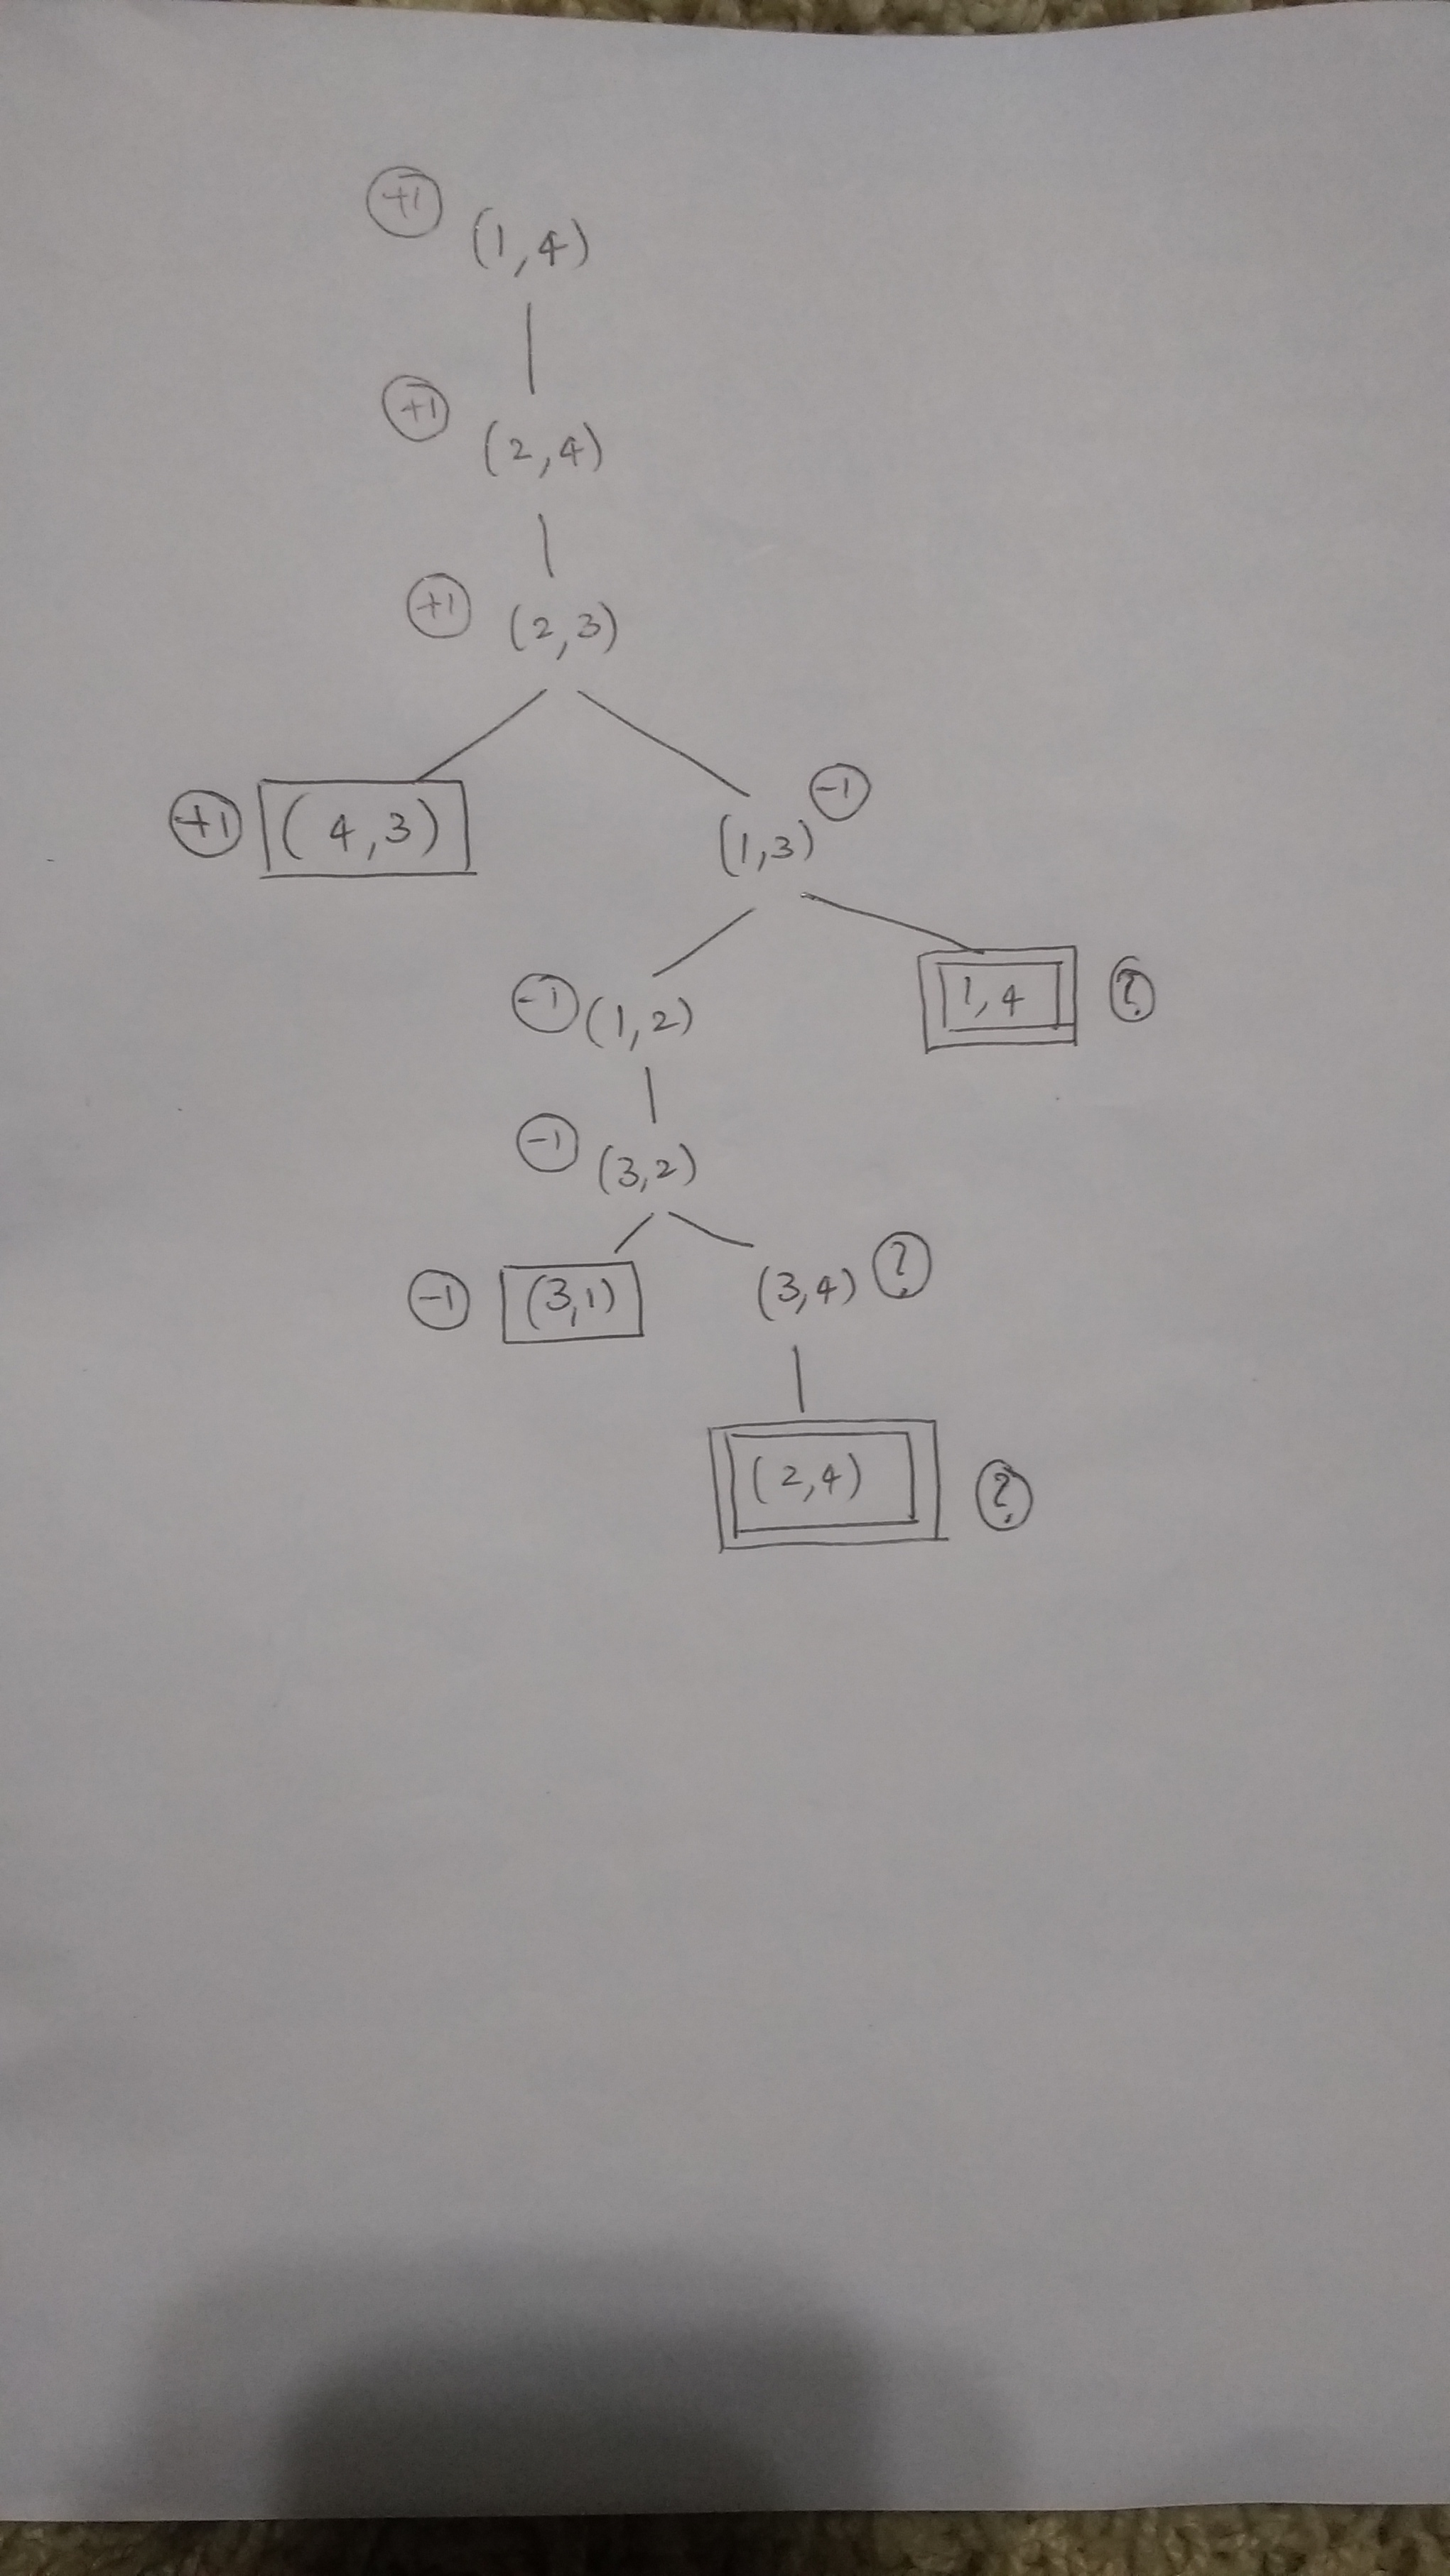 +1 (1,4)
+1 (2,4)
+1 (2,3)
+1 (4,3)
(1,3) -1
-1 (1,2)
1,4 ?
-1 (3,2)
-1 (3,1)
(3,4) ?
(2,4) ?